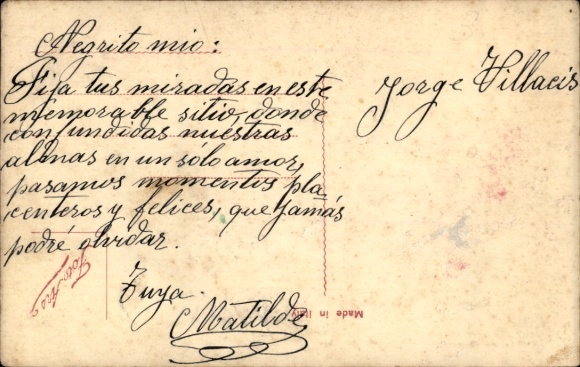 Negrito mio:
Fija tus miradas en este
memorable sitio, donde
confundidas nuestras
almas en un sólo amor,
pasamos momentos pla
centeros y felices, que jamás
podré olvidar.
Tuya.
Matilde
Jorge Villacis
Made in Italy